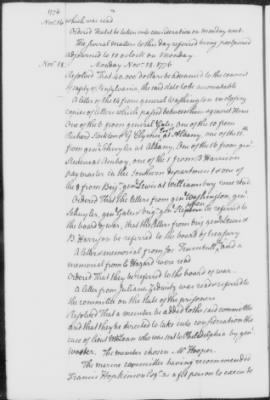 1776
Nov.r 16. which was read
Ordered that it be taken into consideration on monday next.
The several matters to this day referred being postponed
Adjourned to 10 o Clock on Monday.
Nov.r 18. Monday Nov.r 18. 1776
Resolved That 40.000 dollars be advanced to the council
safety of Pensylvania, the said state to be accountable
A letter of the 14 from general Washington enclosing
copies of letters which passed between him &
One of the 6 from general Gates, one of the 10 from
Richard Stockton & G Clymer esq.rs at Albany, one of the
from gen.l Schuyler at Albany, One of the 16 from gen.l
at Amboy, one of the 1 from B Harrison
paymaster in the Southern department & one of
the 8 from Brig.r gen.l Lewis at Williamsburg were read
Ordered That the letters from gen.l Washington, gen.l
Schuyler, gen.l Gates, brig.r gen.l be referred to
the board of war, that the letters from brig.r gen.l Lewis &
B. Harrison be referred to the board of treasury
A letter & memorial from Jos Trumbull and a
memorial from E Hazard were read
Ordered That they be referred to the board of war
A letter from was read & referred to
the committee on the state of the prisoners
Resolved That a member be added to the said committee
and that they be directed to take into consideration the
case of lieut who was sent to Philadelphia by gen.l
Wooster. The member chosen Mr Hooper.
The marine committee having recommended
Francis Hopkinson Esq.r as a fit person to execute